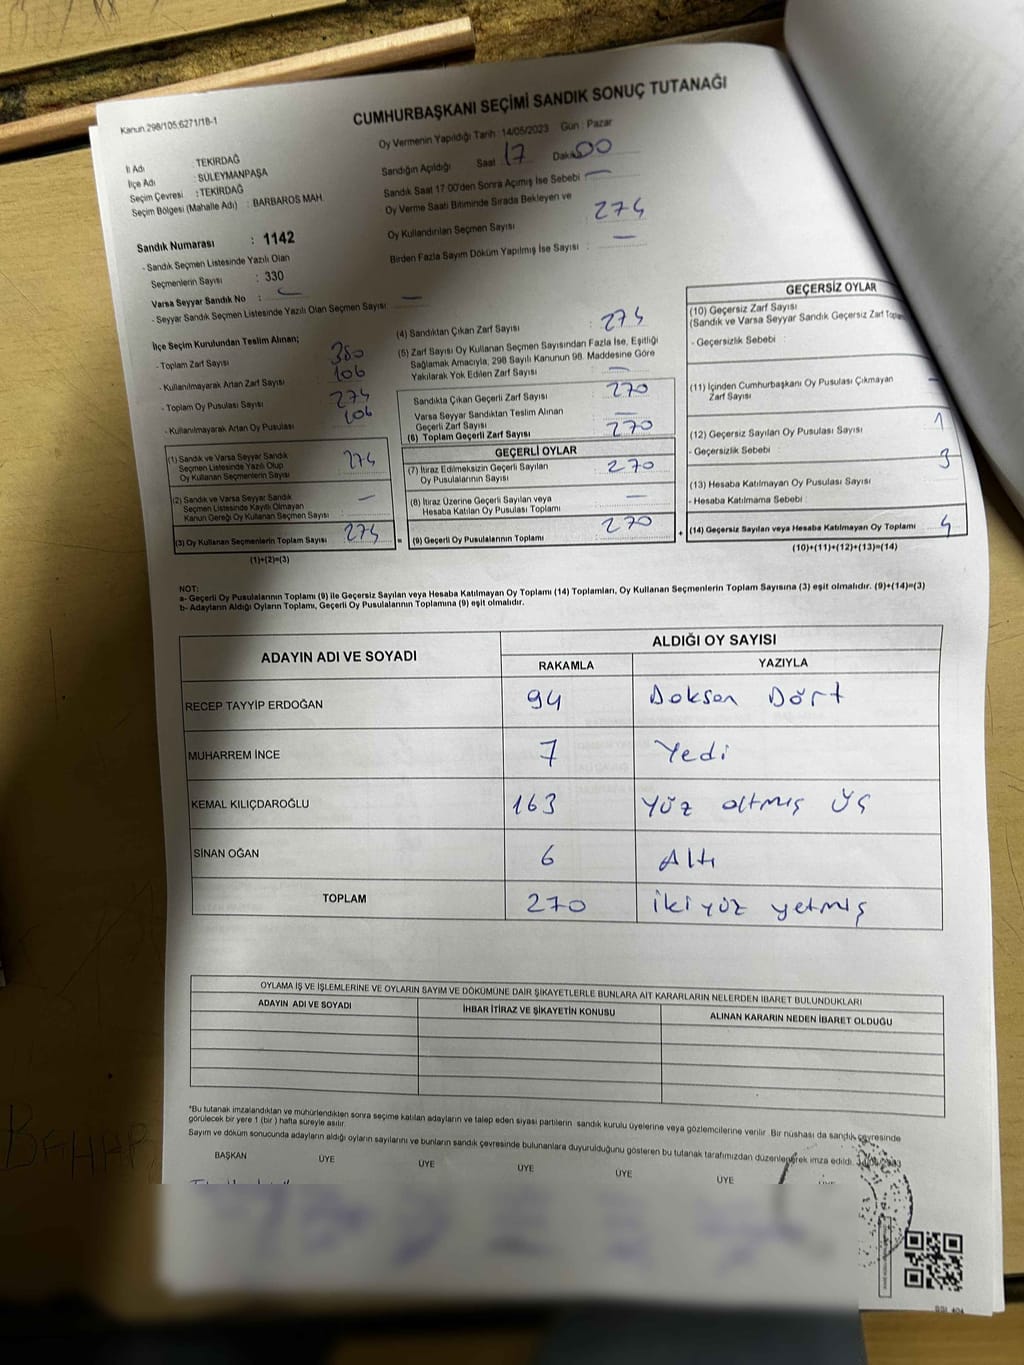 Kanun.298/105;6271/18-1
CUMHURBAŞKANI SEÇİMİ SANDIK SONUÇ TUTANAĞI
Oy Vermenin Yapıldığı Tarih : 14/05/2023 Gün : Pazar
İl Adı : TEKİRDAĞ
İlçe Adı : SÜLEYMANPAŞA
Seçim Çevresi : TEKİRDAĞ
Seçim Bölgesi (Mahalle Adı) : BARBAROS MAH.
Sandık Numarası : 1142
- Sandık Seçmen Listesinde Yazılı Olan
Seçmenlerin Sayısı : 330
Varsa Seyyar Sandık No : –
- Seyyar Sandık Seçmen Listesinde Yazılı Olan Seçmen Sayısı : –
Sandığın Açıldığı Saat 17 Dakika 00
Sandık Saat 17:00'den Sonra Açılmış İse Sebebi : –
Oy Verme Saati Bitiminde Sırada Bekleyen ve
Oy Kullandırılan Seçmen Sayısı 274
Birden Fazla Sayım Döküm Yapılmış İse Sayısı : –
İlçe Seçim Kurulundan Teslim Alınan;
- Toplam Zarf Sayısı : 380
- Kullanılmayarak Artan Zarf Sayısı : 106
- Toplam Oy Pusulası Sayısı : 274
- Kullanılmayarak Artan Oy Pusulası : 106
(1) Sandık ve Varsa Seyyar Sandık
Seçmen Listesinde Yazılı Olup
Oy Kullanan Seçmenlerin Sayısı : 274
(2) Sandık ve Varsa Seyyar Sandık
Seçmen Listesinde Kayıtlı Olmayan
Kanun Gereği Oy Kullanan Seçmen Sayısı : –
(3) Oy Kullanan Seçmenlerin Toplam Sayısı 274
(1)+(2)=(3)
(4) Sandıktan Çıkan Zarf Sayısı : 274
(5) Zarf Sayısı Oy Kullanan Seçmen Sayısından Fazla İse, Eşitliği
Sağlamak Amacıyla, 298 Sayılı Kanunun 98. Maddesine Göre
Yakılarak Yok Edilen Zarf Sayısı : –
Sandıkta Çıkan Geçerli Zarf Sayısı : 270
Varsa Seyyar Sandıktan Teslim Alınan
Geçerli Zarf Sayısı : –
(6) Toplam Geçerli Zarf Sayısı : 270
GEÇERLİ OYLAR
(7) İtiraz Edilmeksizin Geçerli Sayılan
Oy Pusulalarının Sayısı : 270
(8) İtiraz Üzerine Geçerli Sayılan veya
Hesaba Katılan Oy Pusulası Toplamı : –
= (9) Geçerli Oy Pusulalarının Toplamı : 270
GEÇERSİZ OYLAR
(10) Geçersiz Zarf Sayısı
(Sandık ve Varsa Seyyar Sandık Geçersiz Zarf
- Geçersizlik Sebebi :
(11) İçinden Cumhurbaşkanı Oy Pusulası Çıkmayan
Zarf Sayısı –
(12) Geçersiz Sayılan Oy Pusulası Sayısı : 1
- Geçersizlik Sebebi :
(13) Hesaba Katılmayan Oy Pusulası Sayısı : 3
- Hesaba Katılmama Sebebi :
+ (14) Geçersiz Sayılan veya Hesaba Katılmayan Oy Toplamı : 4
(10)+(11)+(12)+(13)=(14)
NOT:
a- Geçerli Oy Pusulalarının Toplamı (9) ile Geçersiz Sayılan veya Hesaba Katılmayan Oy Toplamı (14) Toplamları, Oy Kullanan Seçmenlerin Toplam Sayısına (3) eşit olmalıdır. (9)+(14)=(3)
b- Adayların Aldığı Oyların Toplamı, Geçerli Oy Pusulalarının Toplamına (9) eşit olmalıdır.
ADAYIN ADI VE SOYADI ALDIĞI OY SAYISI
RAKAMLA YAZIYLA
RECEP TAYYİP ERDOĞAN 94 Doksan Dört
MUHARREM İNCE 7 Yedi
KEMAL KILIÇDAROĞLU 163 Yüz altmış üç
SİNAN OĞAN 6 Altı
TOPLAM 270 iki yüz yetmiş
OYLAMA İŞ VE İŞLEMLERİNE VE OYLARIN SAYIM VE DÖKÜMÜNE DAİR ŞİKAYETLERLE BUNLARA AİT KARARLARIN NELERDEN İBARET BULUNDUKLARI
ADAYIN ADI VE SOYADI İHBAR İTİRAZ VE ŞİKAYETİN KONUSU ALINAN KARARIN NEDEN İBARET OLDUĞU
*Bu tutanak imzalandıktan ve mühürlendikten sonra seçime katılan adayların ve talep eden siyasi partilerin sandık kurulu üyelerine veya gözlemcilerine verilir. Bir nüshası da sandık çevresinde
görülecek bir yere 1 (bir) hafta süreyle asılır.
Sayım ve döküm sonucunda adayların aldığı oyların sayılarını ve bunların sandık çevresinde bulunanlara duyurulduğunu gösteren bu tutanak tarafımızdan düzenlenerek imza edildi.
BAŞKAN ÜYE ÜYE ÜYE ÜYE ÜYE